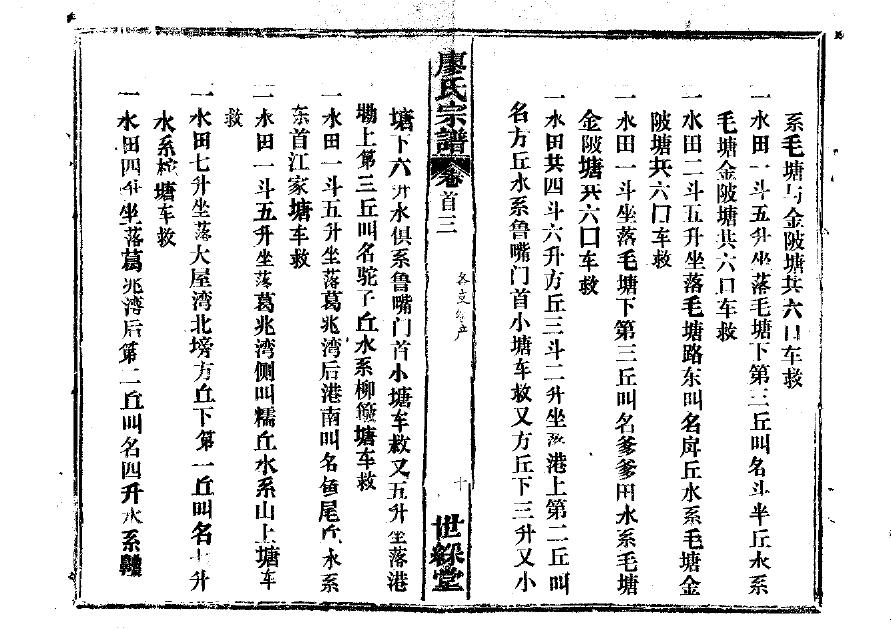 系毛塘与金陂塘共六口车救
一水田一斗五升坐落毛塘下第三丘叫名斗半丘水系
毛塘金陂塘共六口车救
一水田二斗五升坐落毛塘路东叫名 丘水系毛塘金
陂塘共六口车救
一水田一斗坐落毛塘下第三丘叫名爹爹田水系毛塘
金陂塘共六口车救
一水田共四斗六升方丘三斗二升坐落港上第二丘叫
名方丘水系鲁嘴门首小塘车救又方丘下三升又小
廖氏宗譜
卷首三
各支 产
十
世綵堂
塘下六升水俱系鲁嘴门首小塘车救又五升坐落港
坳上第三丘叫名驼子丘水系柳 塘车救
一水田一斗五升坐落葛兆湾后港南叫名鱼尾丘水系
东首江家塘车救
一水田一斗五升坐落葛兆湾侧叫糯丘水系山上塘车
救
一水田七升坐落大屋湾北塝方丘下第一丘叫名七升
水系 塘车救
一水田四升坐落葛兆湾后第二丘叫名四升水系